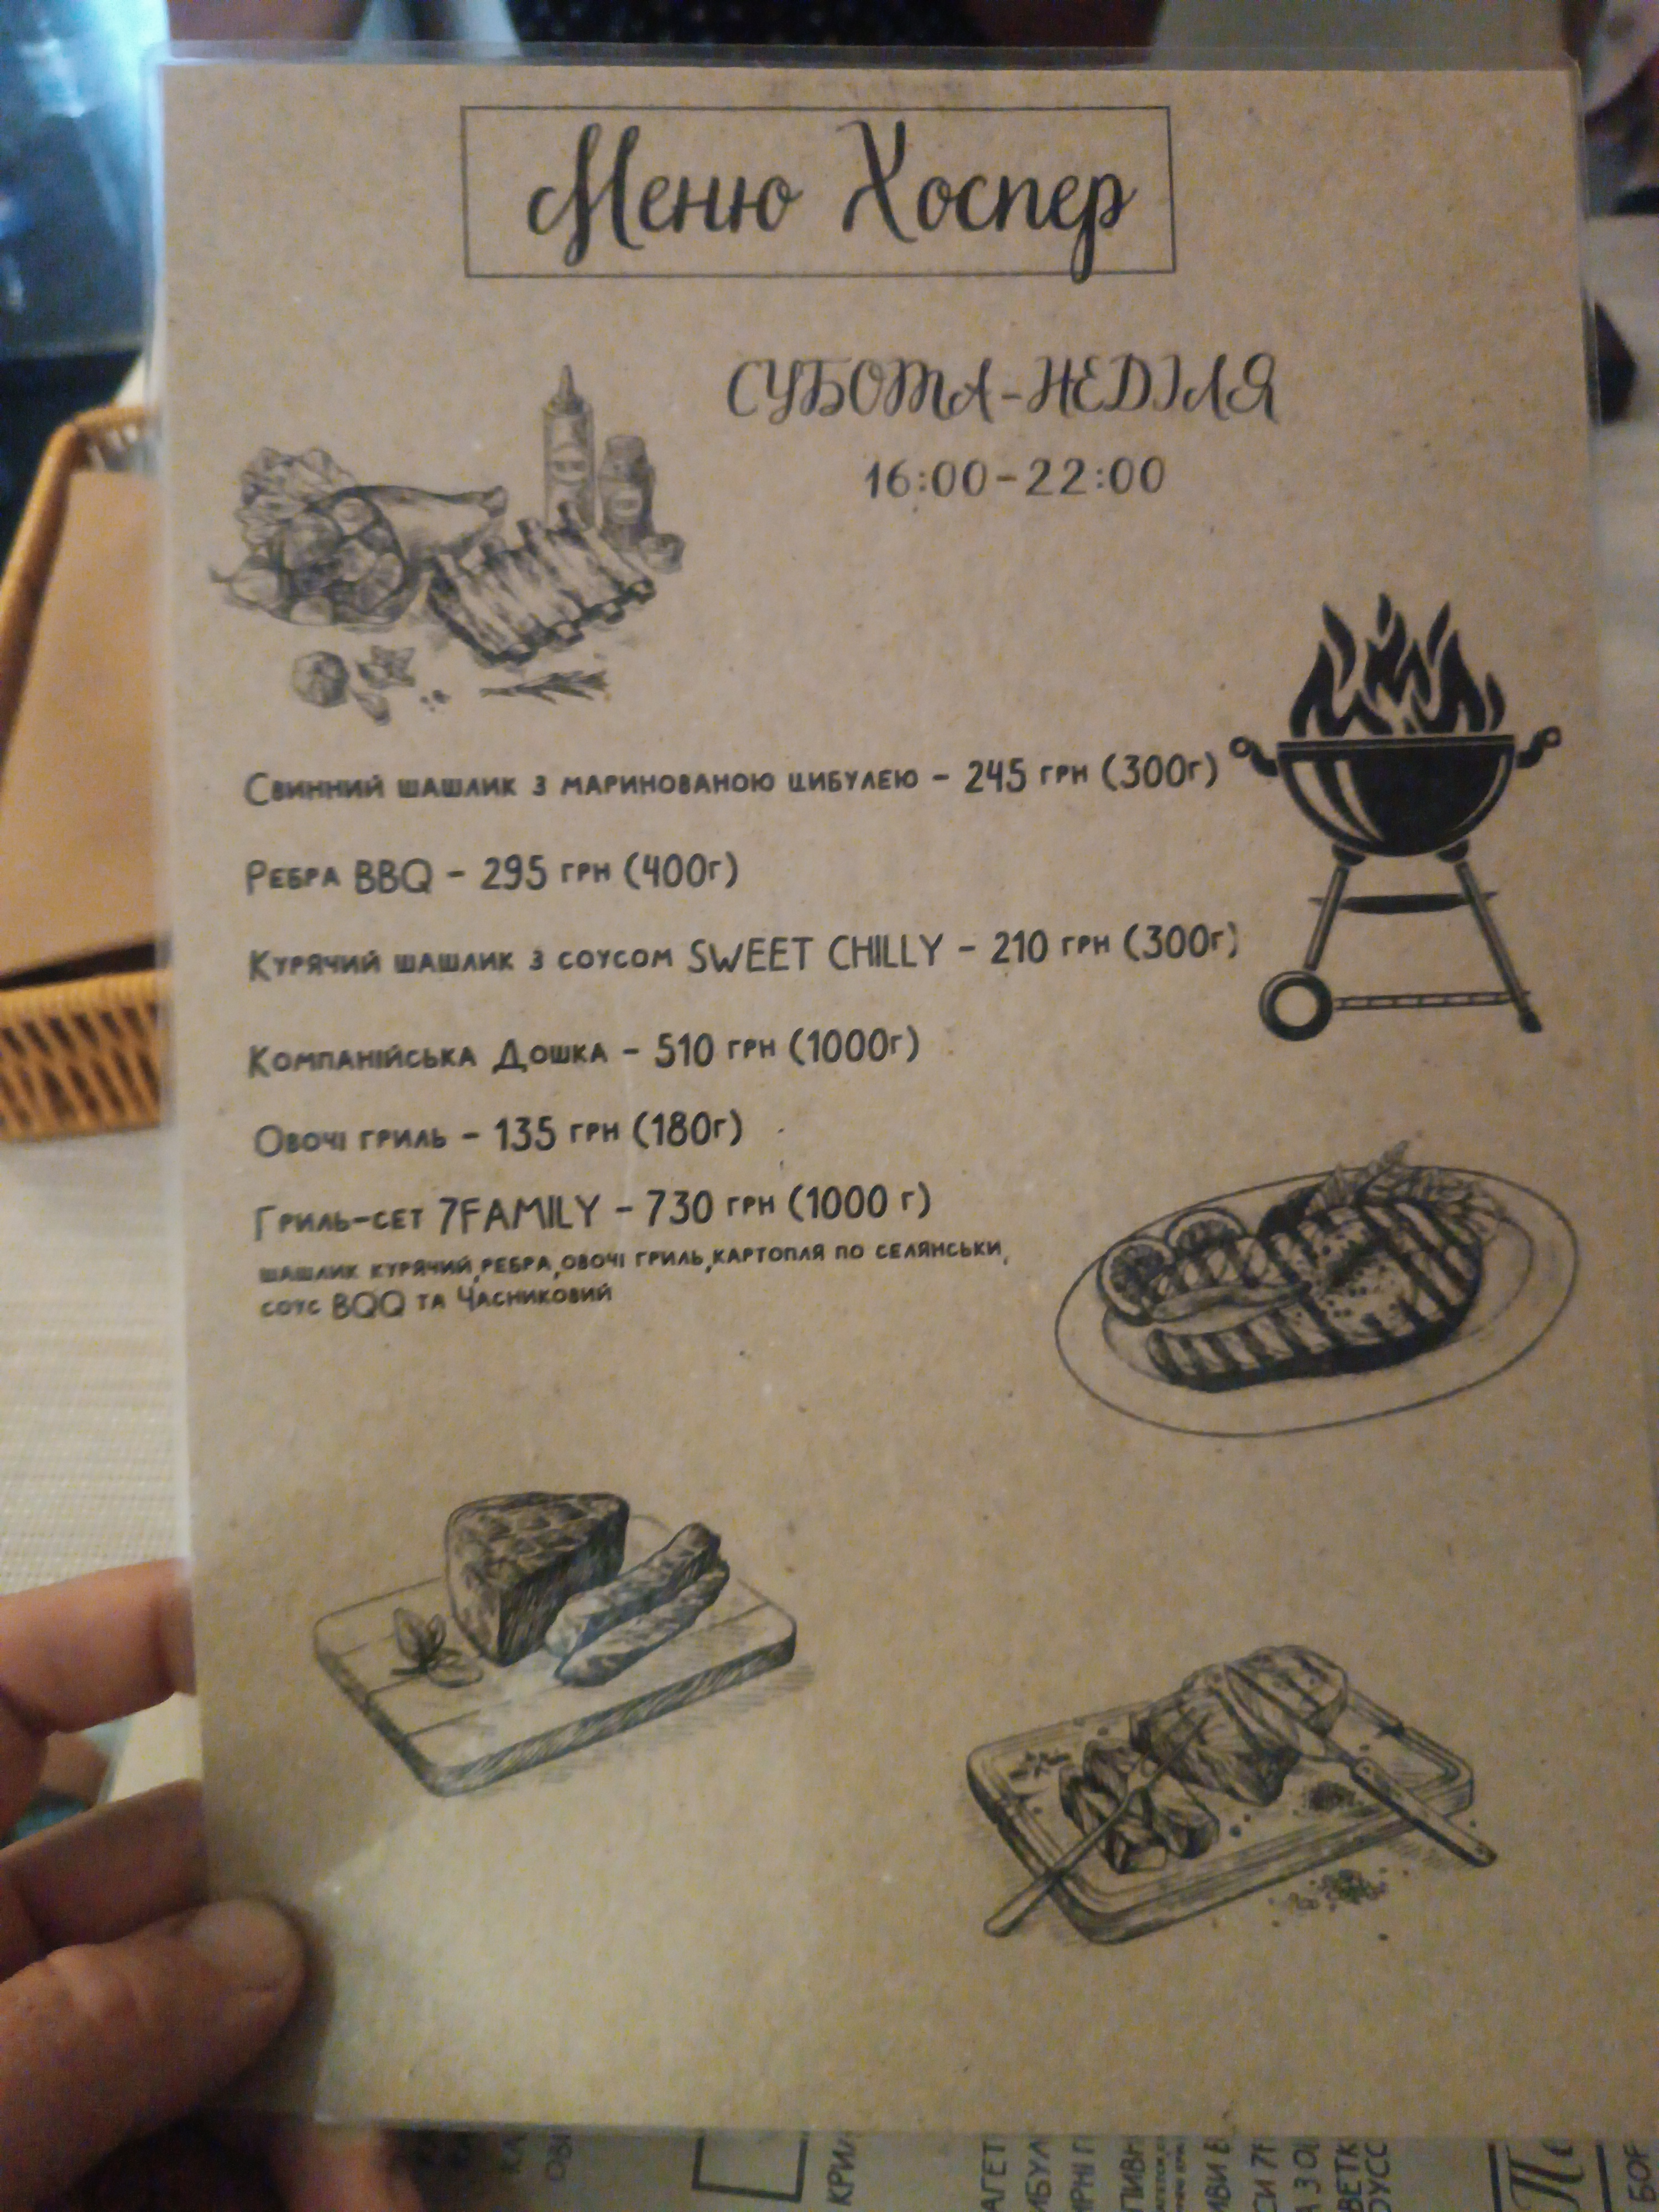 Меню Хоспер
СУБОТА-НЕДІЛЯ
16:00-22:00
Свинний шашлик з маринованою цибулею - 245 грн (300г)
Ребра BBQ - 295 грн (400г)
Курячий шашлик з соусом SWEET CHILLY - 210 грн (300г)
Компанійська Дошка - 510 грн (1000г)
Овочі гриль - 135 грн (180г)
Гриль-сет 7FAMILY - 730 грн (1000 г)
шашлик курячий,ребра,овочі гриль,картопля по селянськи,
соус BQQ та Часниковий